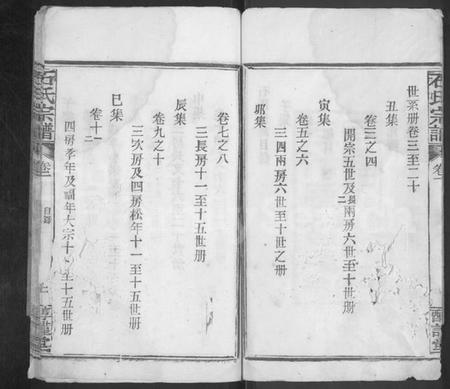 石氏宗譜
卷一
世系冊卷三至二十
丑集
卷三之四
開宗五世及長二兩房六世至十世冊
寅集
卷五之六
三四兩房六世至十世之冊
卯集
卷七之八
三長房十一至十五世冊
辰集
卷九之十
三次房及四房松年十一至十五世冊
巳集
卷十二
四房季年及福年大宗十一至十五世冊
石氏宗譜
卷一
目錄